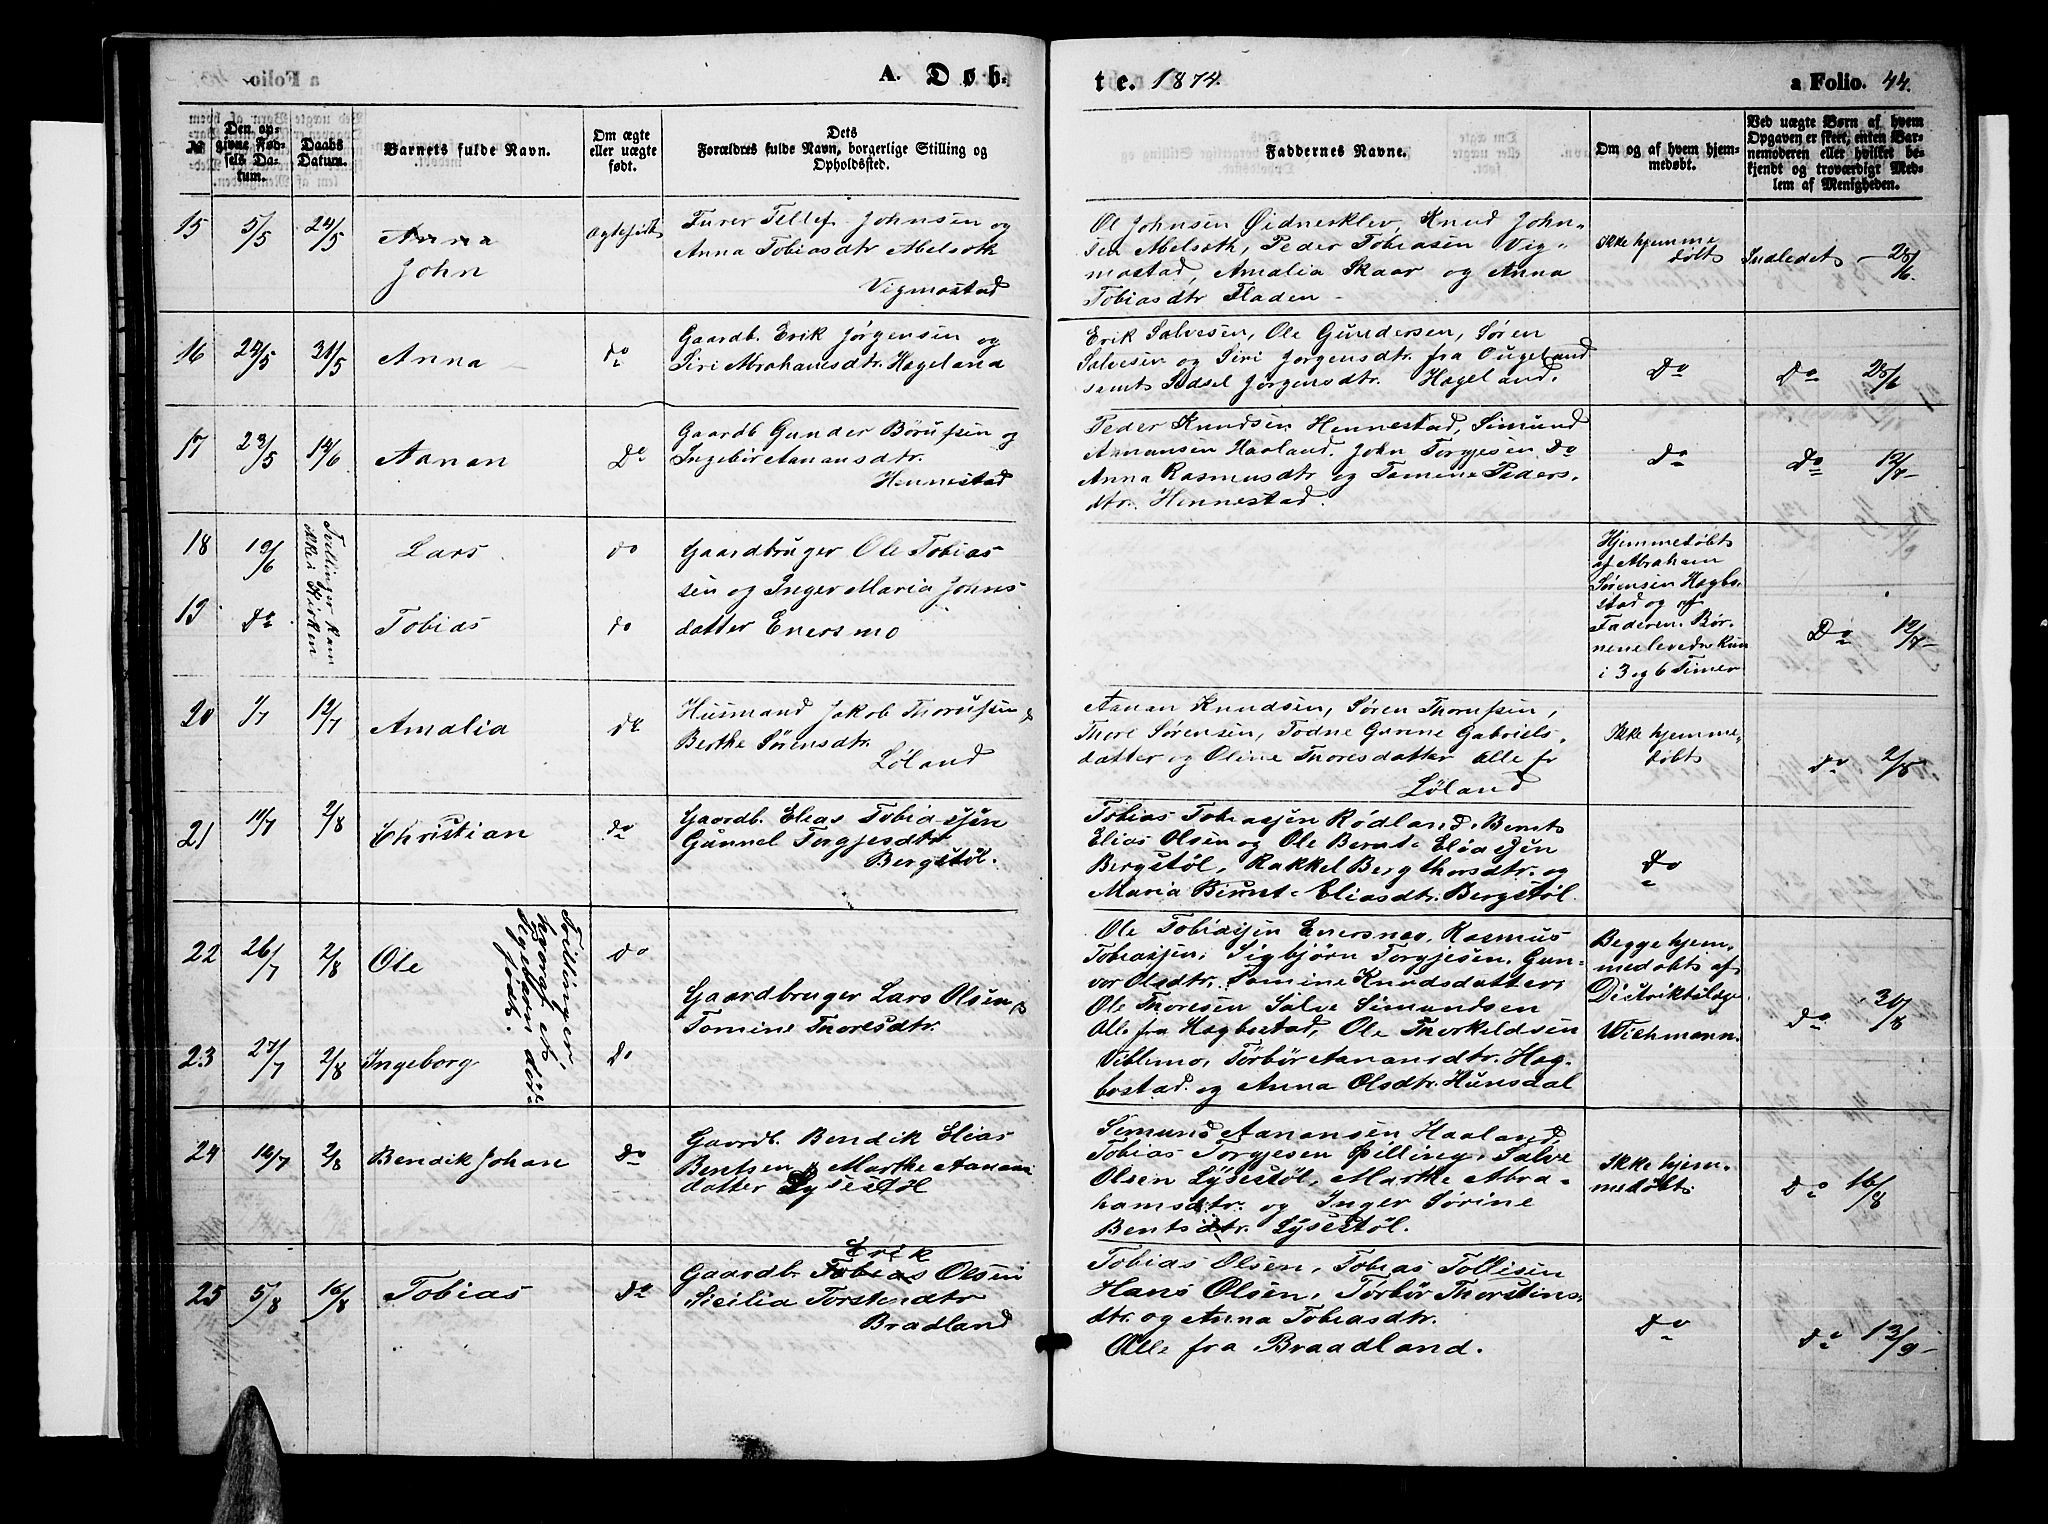 A. Døb-
te. 1874.
a Folio. 44.
№
Den op-
givne Fød-
sels Da-
tum.
Daabs
Datum.
Barnets fulde Navn.
Om ægte
eller uægte
født.
Dets
Forældres fulde Navn, borgerlige Stilling og
Opholdssted.
Faddernes Navne.
Om og af hvem hjem-
medøbt.
Ved uægte Børn af hvem
Opgaven er skeet, enten Bar-
nemoderen eller hvilket be-
kjendt og troværdigt Med-
lem af Menigheden.
15 5/5 24/5 Anna
John
Ægtefødt
Furer Tellef Johnsen og
Anna Tobiasdtr Abelsoth
Vigmostad
Ol Johnsen Øidnesklev, Knud John-
sen Abelsoth, Peder Tobiasen Vig-
mostad, Amalia Skaar og Anna
Tobiasdtr Fladen -
Ikke hjemme
døbt
Indledet - 28/6.
16 24/5 31/5 Anna do
Gaardb. Erik Jørgensen og
Siri Abrahamsdtr. Hageland
Erik Salvesen, Ole Gundersen, Søren
Salvesen og Siri Jørgensdtr. fra Ougeland
samt Sidsel Jørgensdtr. Hageland.
Do
Do 28/6
17 23/5 14/6 Aanan Do
Gaardb Gunder Børufsen og
Ingebør Aanansdtr.
Hennestad
Peder Knudsen Hennestad, Simund
Aanansen Haaland. John Torgjesen Do
Anna Rasmusdtr og Tomine Peders-
dtr. Hennestad.
do
Do 12/7-
18 19/6 Lars do
Tvillinger kam
ikke i Kirken
Gaardbruger Ole Tobias
sen og Inger Maria Johns
datter Enersmo
19 do Tobias do
Hjemmedøbt
af Abraham
Sørensen Hægbo-
stad og af
Faderen. Bør-
nene levede kun
i 3 og 6 Timer
Do 12/7-
20 1/7 12/7 Amalia do
Husmand Jakob Thorufsen &
Berthe Sørensdtr.
Løland
Aanan Knudsen, Søren Thorufsen,
Thore Sørensen, Todne Gunne Gabriels-
datter og Oline Thoresdatter alle fr
Løland
Ikke hjemme-
døbt
do 2/8
21 11/7 2/8 Christian do
Gaardb. Elias Tobiasjen
Gunnel Torgjesdtr
Bergstøl.
Tobias Tobiasjen Rødland. Bernt
Elias Olsen og Ole Bernt Eliasjen
Bergstøl, Rakkel Bergthorsdtr. og
Maria Bernt-Eliasdtr. Bergstøl.
do
22 26/7 2/8 Ole do
Tvillinger,
hvoraf et
Pigebarn død-
født.
Gaardbruger Lars Olsen &
Tomine Thoresdtr.
23 27/7 2/8 Ingeborg do
Ole Tobiasjen Enersmo, Rasmus
Tobiasjen, Sigbjørn Torgjesen, Gun-
vor Olsdtr. Tomine Knudsdatter,
Ole Thoresen Salve Simundsen
Alle fra Hægbostad, Ole Therkeldsen
Viblemo, Torbør Aanansdtr. Hæg-
bostad og Anna Olsdtr. Hunsdal
Begge hjem-
medøbt af
Distriktslæge
Wichmann.
do 30/8
24 14/7 2/8 Bendik Johan do
Gaardb. Bendik Elias
Bentsen & Marthe Aanans
datter Lysestøl
Simund Aanansen Haaland,
Tobias Torgjesen Øilling, Salve
Olsen Lysestøl, Marthe Abra-
hamsdtr. og Inger Sørine
Bentsdtr. Lysestøl.
Ikke hjem-
medøbt.
do 16/8
25 5/8 16/8 Tobias do
Erik
Gaardb. Tobias Olsen
Sicilia Torstendtr
Bradland
Tobias Olsen, Tobias Tollisen
Hans Olsen, Torbør Thorstins-
dtr. og Anna Tobiasdtr.
Alle fra Braadland.
do
do 13/9-